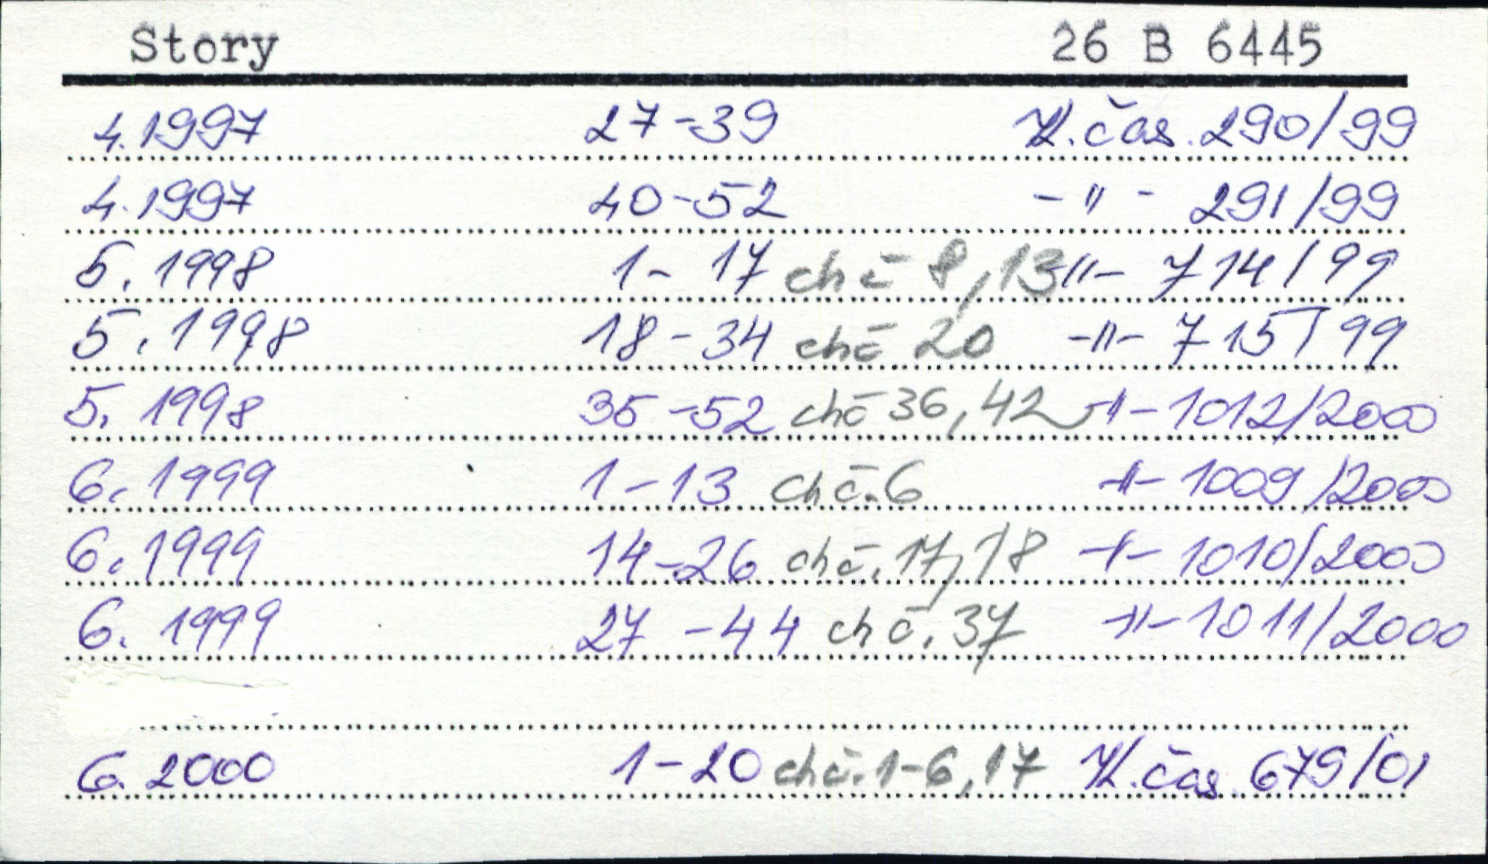 Story 26 B 6445
4.1997 27-39 Zl. čas. 290/99
4.1997 40-52 -"- 291/99
5. 1998 1- 17 chč 8,13 -"- 714/99
5. 1998 18-34 chč 20 -"- 715/99
5. 1998 35-52 chč 36,42 -"- 1012/2000
6. 1999 1-13 chč. 6 -"- 1009/2000
6. 1999 14-26 chč. 17,18 -"- 1010/2000
6. 1999 27 -44 chč. 37 -"- 1011/2000
6. 2000 1-20 chč. 1-6,17 čas. 679/01